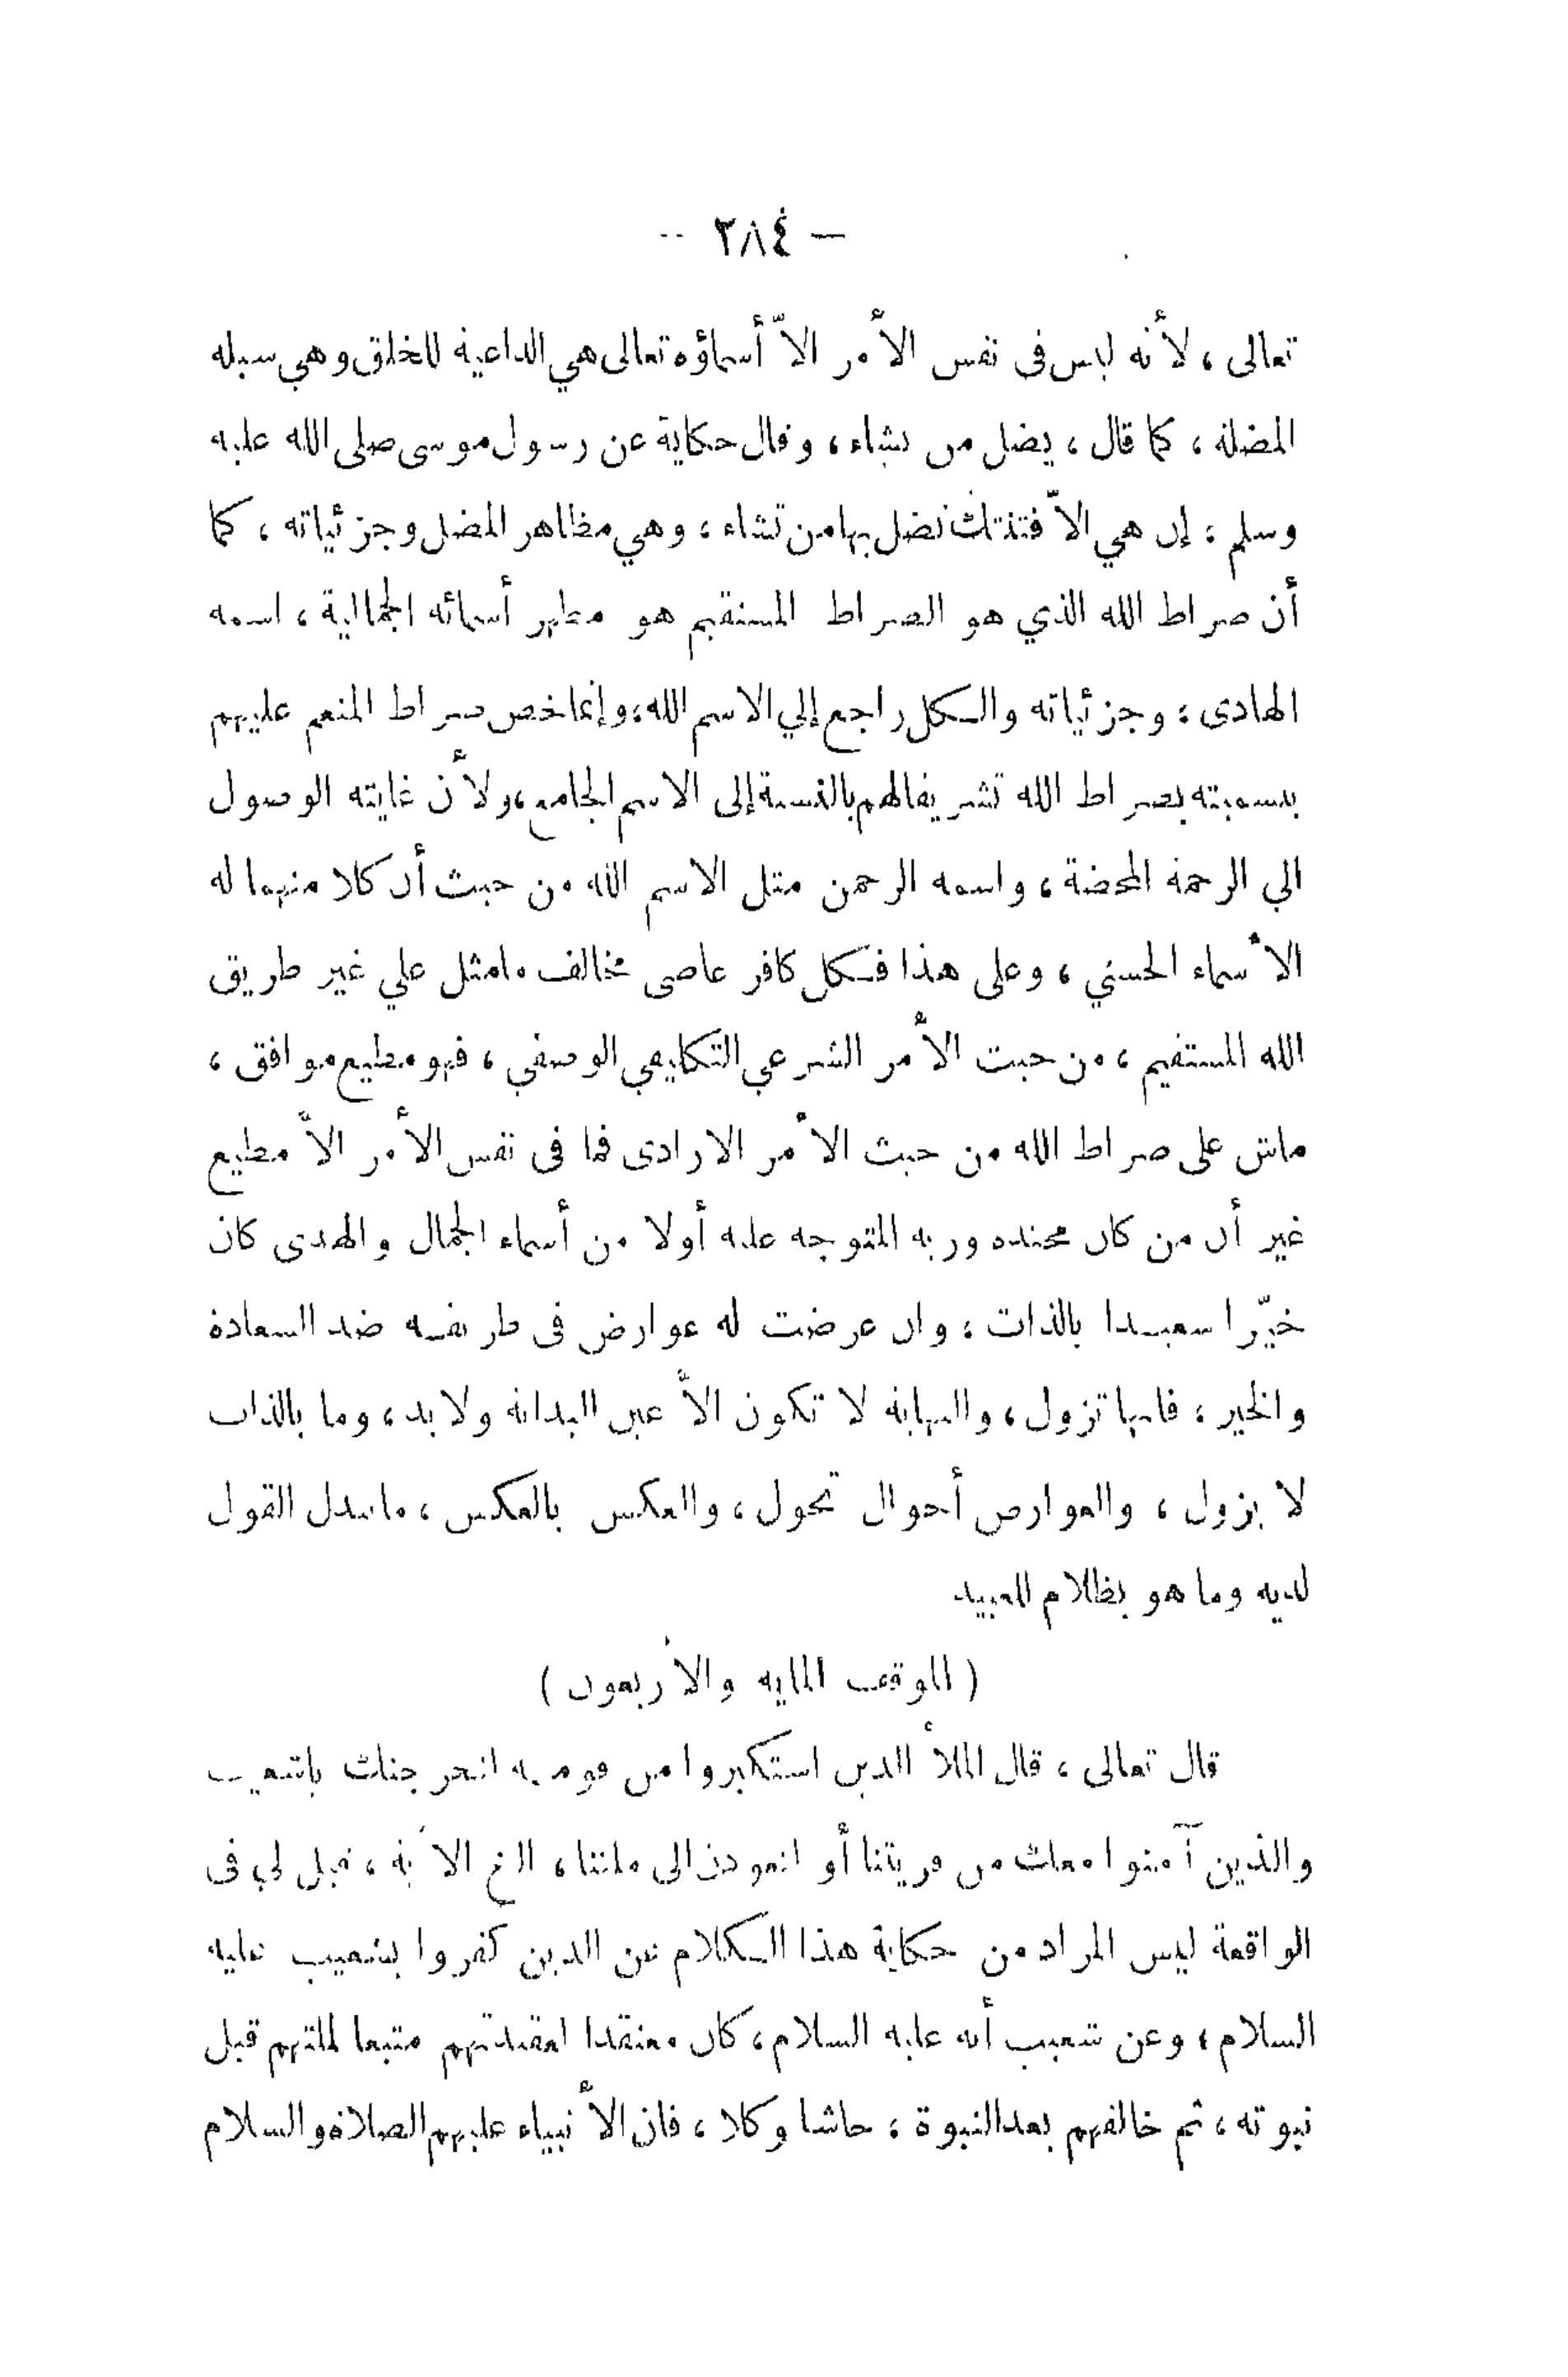 — ٢٨٤ —
تعالى ، لأنه ليس فى نفس الأمر الاّ أسماؤه تعالى هي الداعية للخلق وهي سبله
المضلة ، كما قال ، يضل من يشاء ، وقال حكاية عن رسول موسى صلى الله عليه
وسلم ، إن هي الاّ فتنتك تضل بها من تشاء ، وهي مظاهر المضل وجزئياته ، كما
أن صراط الله الذي هو الصراط المستقيم هو مظهر أسمائه الجمالية ، اسمه
الهادى ، وجزئياته والكل راجع إلي الاسم الله ، وإنما خص صراط المنعم عليهم
بتسميته بصراط الله تشريفا لهم بالنسبة إلى الاسم الجامع ، ولأن غايته الوصول
الي الرحمة المحضة ، واسمه الرحمن مثل الاسم الله من حيث أن كلا منهما له
الأسماء الحسني ، وعلى هذا فكل كافر عاصى مخالف مامثل علي غير طريق
الله المستقيم ، من حيث الأمر الشرعي التكليفي الوصفي ، فهو مطيع موافق ،
ماش على صراط الله من حيث الأمر الارادى فما فى نفس الأمر الاّ مطيع
غير أن من كان محتده وربه المتوجه عليه أولا من أسماء الجمال والهدى كان
خيّرا سعيدا بالذات ، وان عرضت له عوارض فى طريقه ضد السعادة
والخير ، فانها تزول ، والنهاية لا تكون الاّ عين البداية ولا بد ، وما بالذات
لا يزول ، والعوارض أحوال تحول ، والعكس بالعكس ، مايبدل القول
لديه وما هو بظلام للعبيد
( الموقف المايه والأربعون )
قال تعالى ، قال الملأ الذين استكبروا من قومه لنخرجنك ياشعيب
والذين آمنوا معك من قريتنا أو لتعودن الى ملتنا ، الخ الآية ، قيل لي فى
الواقعة ليس المراد من حكاية هذا الكلام عن الذين كفروا بشعيب عليه
السلام ، وعن شعيب أنه عليه السلام ، كان معتقدا لعقيدتهم متبعا لملتهم قبل
نبوته ، ثم خالفهم بعد النبوة ، حاشا وكلا ، فان الأنبياء عليهم الصلاة والسلام